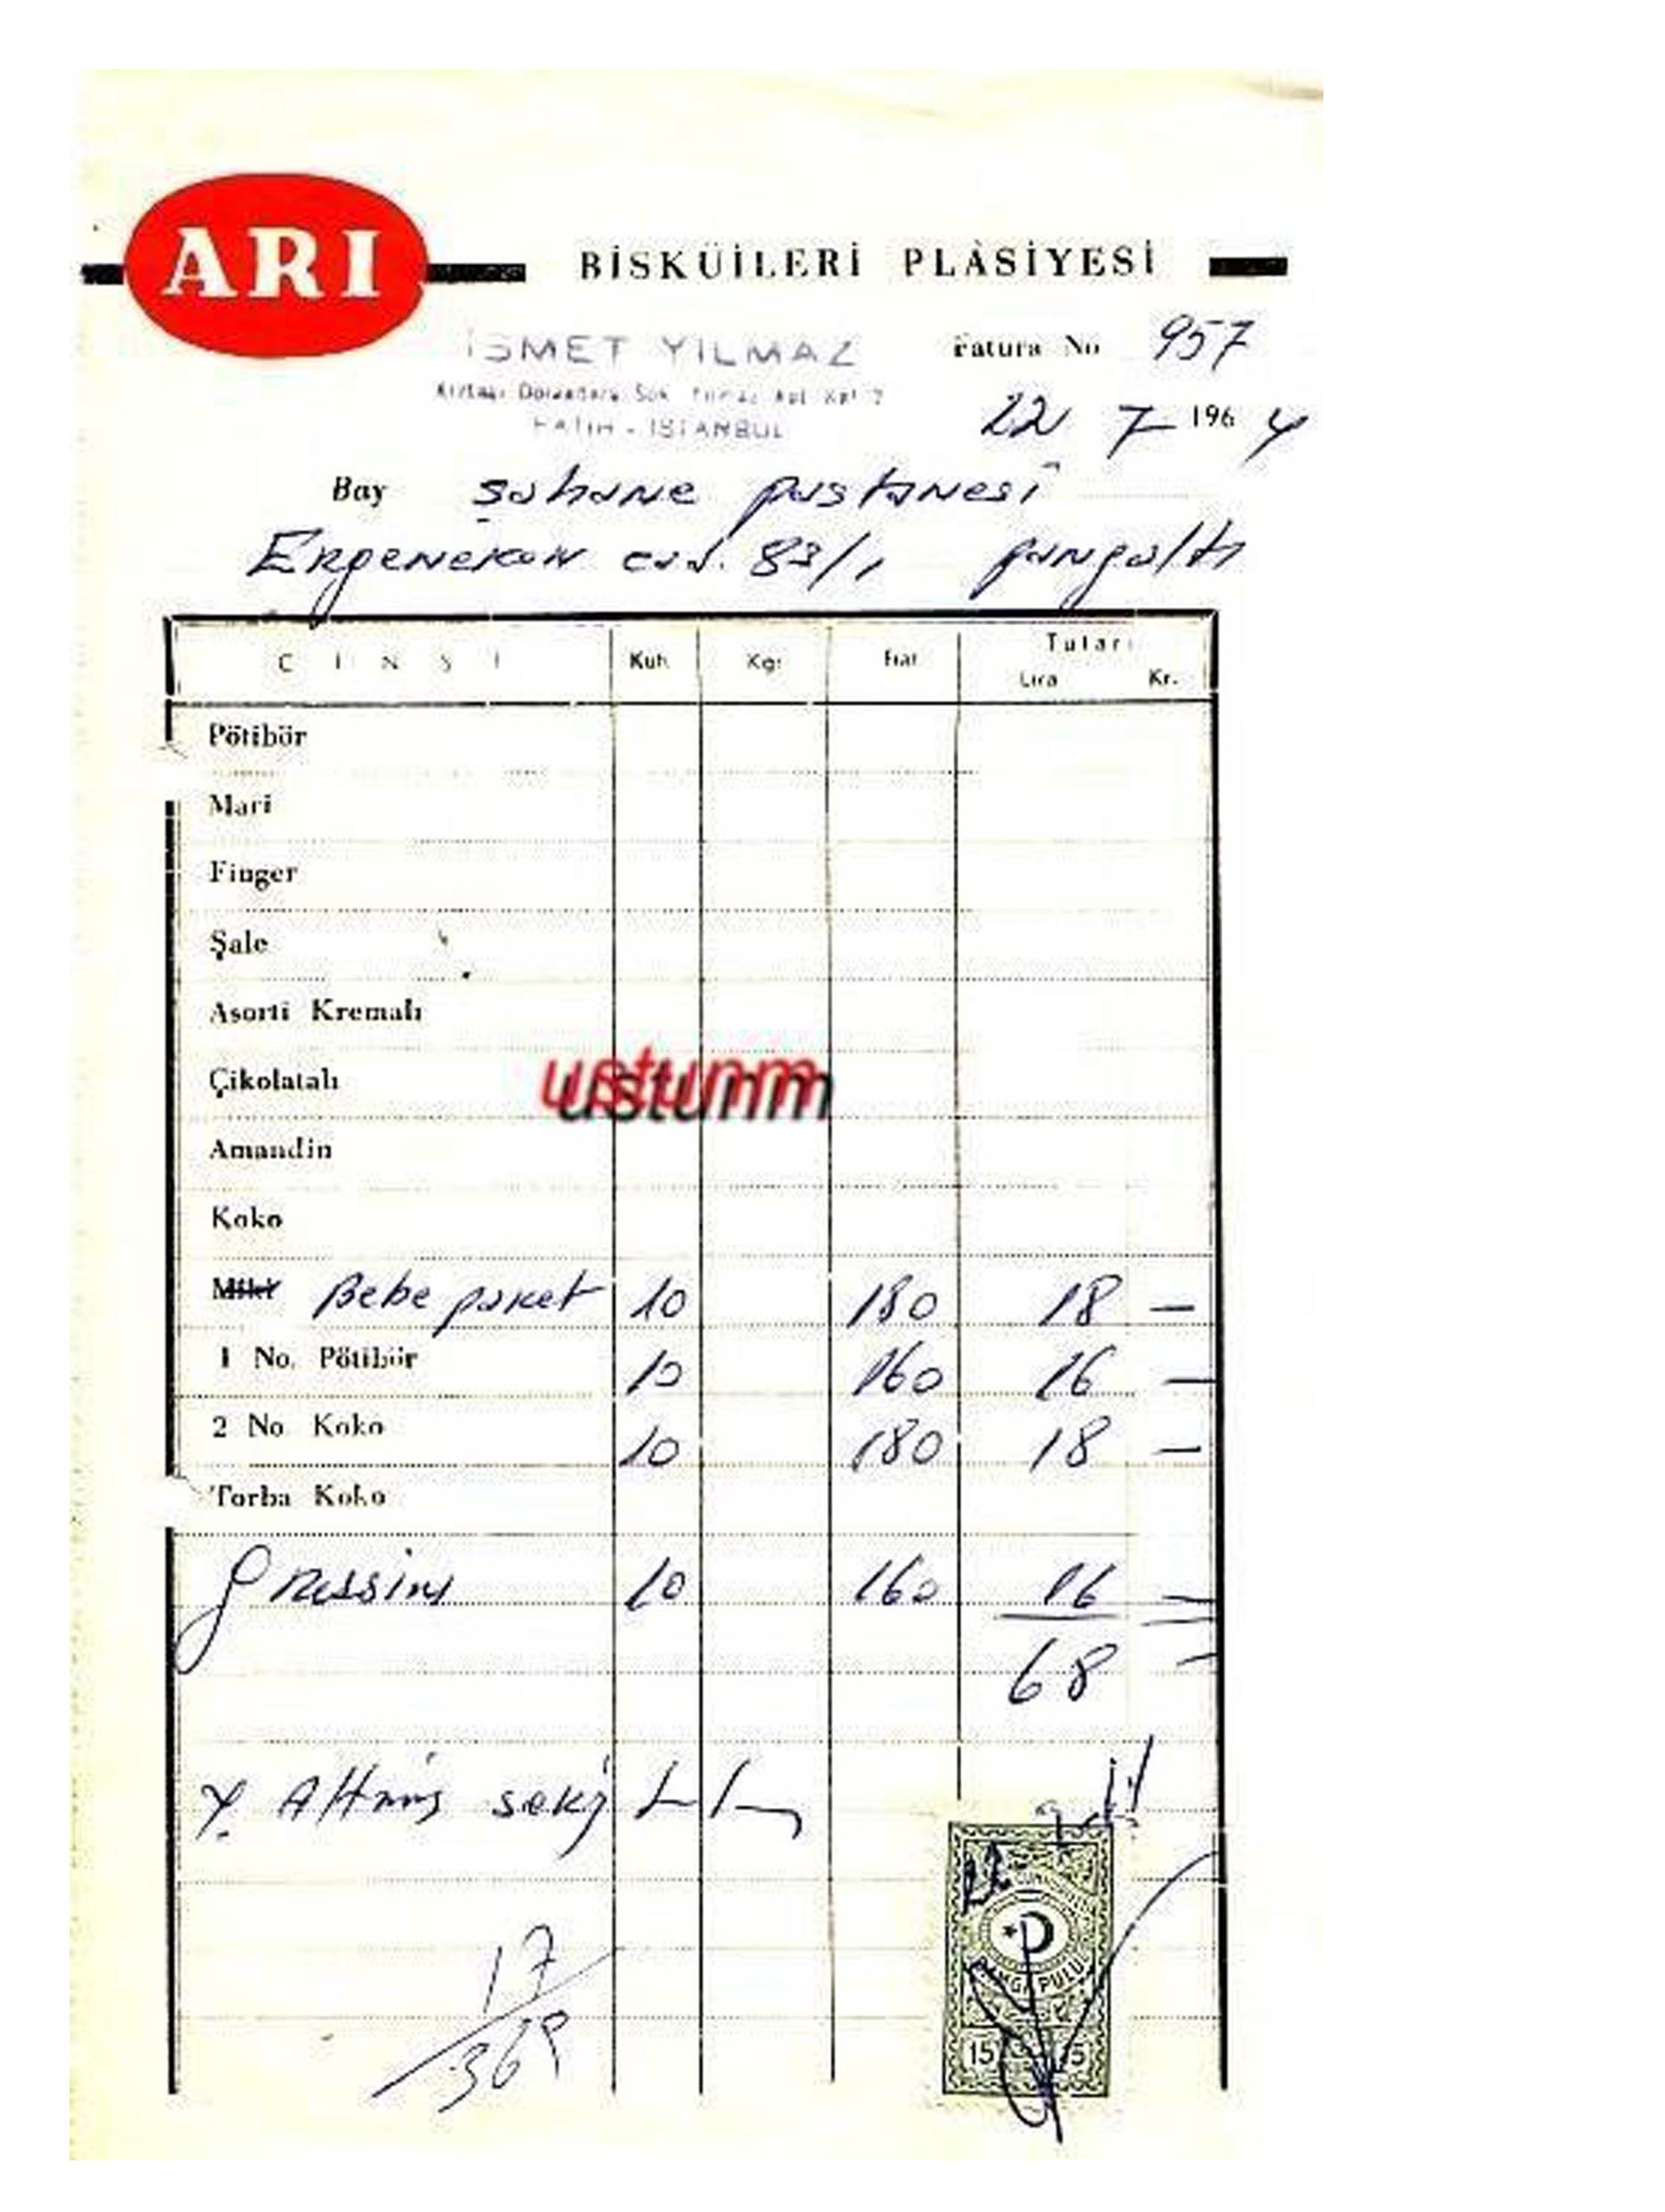 ARI BİSKÜİLERİ PLÂSİYESİ
İSMET YILMAZ
Fatura No 957
FATİH - İSTANBUL
22 7 1964
Bay Şahane pastanesi
Ergenekon cad. 83/1 pangaltı
CİNSİ Kut. Kgr. Fiat Tutarı
Lira Kr.
Pötibör
Mari
Finger
Şale
Asorti Kremalı
Çikolatalı
ustunm
Amandin
Koko
Miki Bebe paket 10 180 18 —
1 No. Pötibör 10 160 16 —
2 No. Koko 10 180 18 —
Torba Koko
grissini 10 160 16 —
68 —
Y. Altmış sekiz
DAMGA PULU
17
369
15